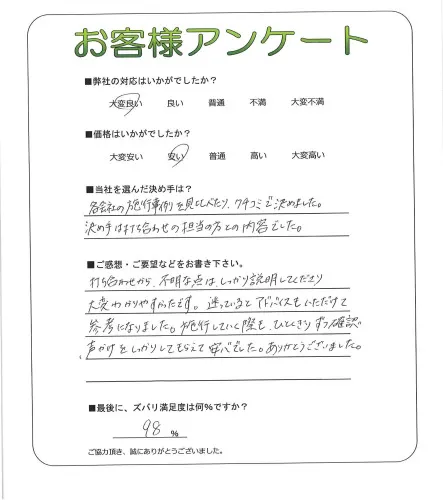 お客様アンケート
■弊社の対応はいかがでしたか？
大変良い 良い 普通 不満 大変不満
■価格はいかがでしたか？
大変安い 安い 普通 高い 大変高い
■当社を選んだ決め手は？
各会社の施行事例を見比べたり、クチコミで決めました。
決め手は打ち合わせの担当の方との内容でした。
■ご感想・ご要望などをお書き下さい。
打ち合わせから、不明な点はしっかり説明してくださり
大変わかりやすかったです。迷っているとアドバイスもいただけて
参考になりました。施行していく際も、ひとつひとつ確認、
声がけをしっかりしてもらえて安心でした。ありがとうございました。
■最後に、ズバリ満足度は何％ですか？
98 ％
ご協力頂き、誠にありがとうございました。